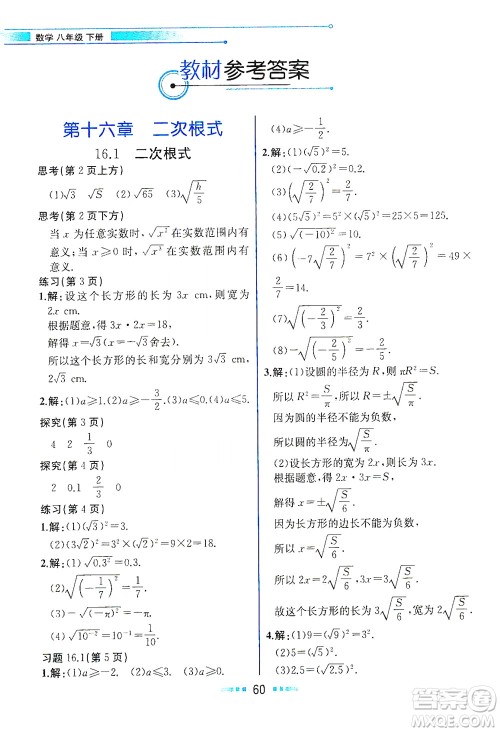 数学 八年级 下册
教材参考答案
第十六章 二次根式
16.1 二次根式
思考(第 2 页上方)
(1)√3 √S (2)√65 (3)√(h/5)
思考(第 2 页下方)
当 x 为任意实数时，√x² 在实数范围内有
意义；当 x≥0 时，√x³ 在实数范围内有
意义.
练习(第 3 页)
1.解：设这个长方形的长为 3x cm，则宽为
2x cm.
根据题意，得 3x·2x=18.
解得 x₁=√3，x₂=-√3(舍去).
所以这个长方形的长和宽分别为 3√3 cm，
2√3 cm.
2.解：(1)a≥1. (2)a≥-3/2. (3)a≤0. (4)a≤5.
探究(第 3 页)
4 2 1/3 0
探究(第 4 页)
2 0.1 2/3 0
练习(第 4 页)
1.解：(1)(√3)²=3.
(2)(3√2)²=3²×(√2)²=9×2=18.
2.解：(1)√0.3²=0.3.
(2)√((-1/7)²)=√((1/7)²)=1/7.
(3)-√(-π)²=-√π²=-π.
(4)√10⁻²=10⁻¹=1/10.
习题 16.1(第 5 页)
1.解：(1)a≥-2. (2)a≤3. (3)a≥0.
(4)a≥-1/2.
2.解：(1)(√5)²=5.
(2)(-√0.2)²=0.2.
(3)(√(2/7))²=2/7.
(4)(5√5)²=5²×(√5)²=25×5=125.
(5)√(-10)²=10.
(6)(-7√(2/7))²=7²×(√(2/7))²=49×
2/7=14.
(7)√((-2/3)²)=2/3.
(8)-√((-2/5)²)=-2/5.
3.解：(1)设圆的半径为 R，则 πR²=S.
所以 R²=S/π. 所以 R=±√(S/π).
因为圆的半径不能为负数，
所以圆的半径为 √(S/π).
(2)设长方形的宽为 2x，则长为 3x.
根据题意，得 2x·3x=S.
解得 x=±√(S/6).
因为长方形的边长不能为负数，
所以 x=√(S/6).
故这个长方形的长为 3√(S/6)，宽为 2√(S/6).
4.解：(1)9=(√9)². (2)5=(√5)².
(3)2.5=(√2.5)². (4)0.25=(√0.25)².
60